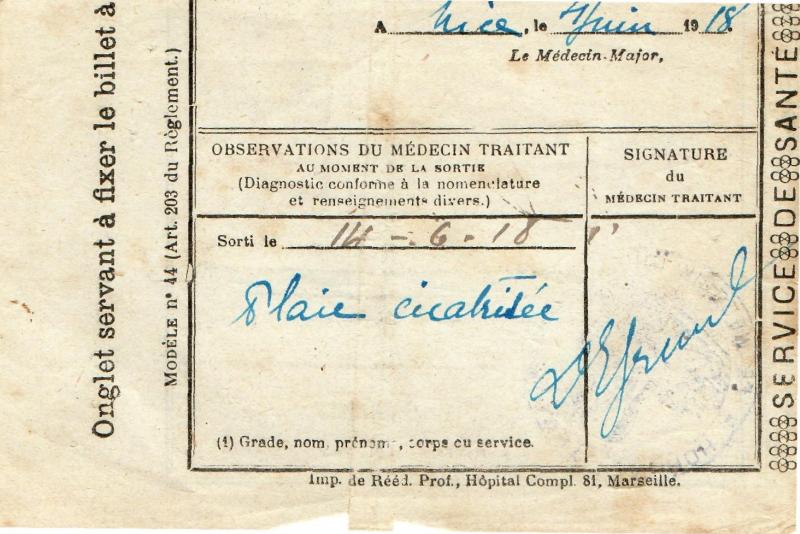 A Nice, le 4 Juin 1918.
Le Médecin-Major,
OBSERVATIONS DU MÉDECIN TRAITANT
AU MOMENT DE LA SORTIE
(Diagnostic conforme à la nomenclature
et renseignements divers.)
SIGNATURE
du
MÉDECIN TRAITANT
Sorti le 14 - 6 - 18
Plaie cicatrisée
(1) Grade, nom, prénoms, corps ou service.
Imp. de Rééd. Prof., Hôpital Compl. 81, Marseille.
Onglet servant à fixer le billet à
MODÈLE n° 44 (Art. 203 du Règlement.)
SERVICE DE SANTÉ